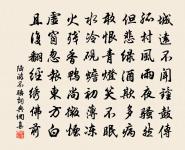 城遠不聞鐘鼓傳
孤村風雨夜騷然
但悲綠酒欺多病
敢恨青燈笑不眠
水冷硯蟾初薄凍
火殘香鴨尚微煙
虛窗忽報東方白
且復翻經繡佛前
陸游不睡詞典網集